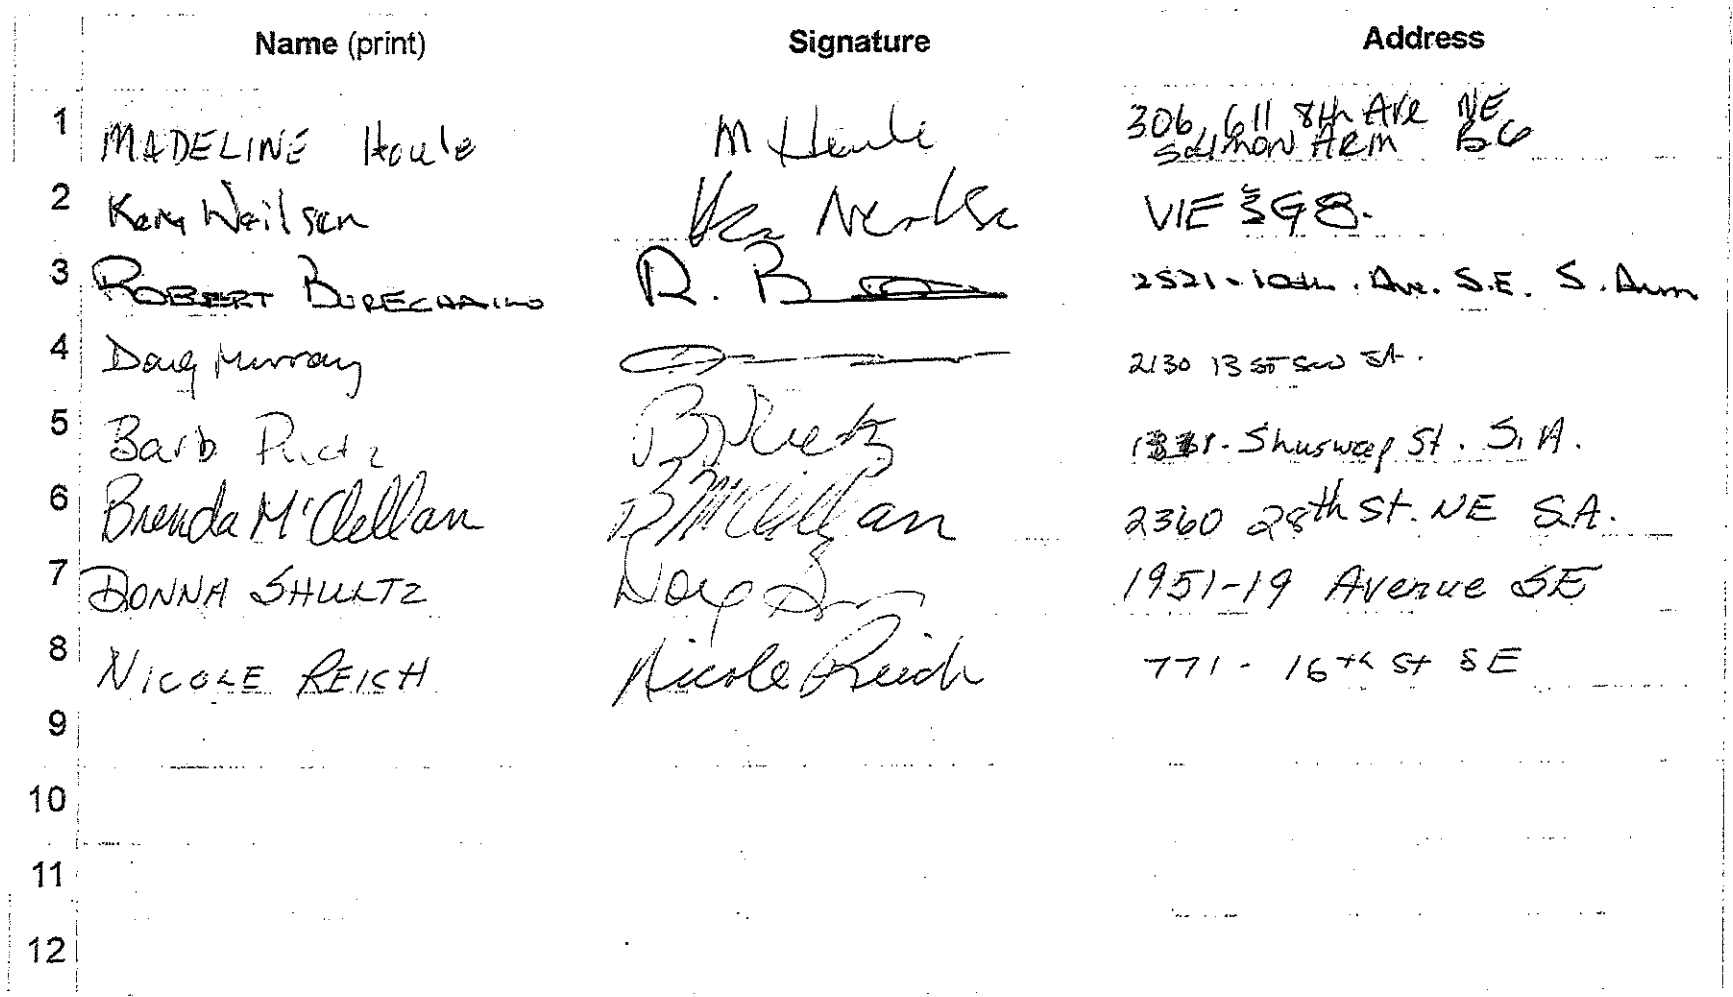 Name (print) Signature Address
1 MADELINE Houle M Houle 306, 611 8th Ave NE
Salmon Arm BC
2 Neilsen V1E 3G8.
3 ROBERT R. B 2521-10th. Ave. S.E. S. Arm
4 Doug Murray 2130 13 ST SW SA.
5 Barb Shuswap St. S.A.
6 Brenda McClellan B McClellan 2360 28th St. NE S.A.
7 DONNA SHULTZ 1951-19 Avenue SE
8 NICOLE REICH Nicole Reich 771 - 16th St SE
9
10
11
12